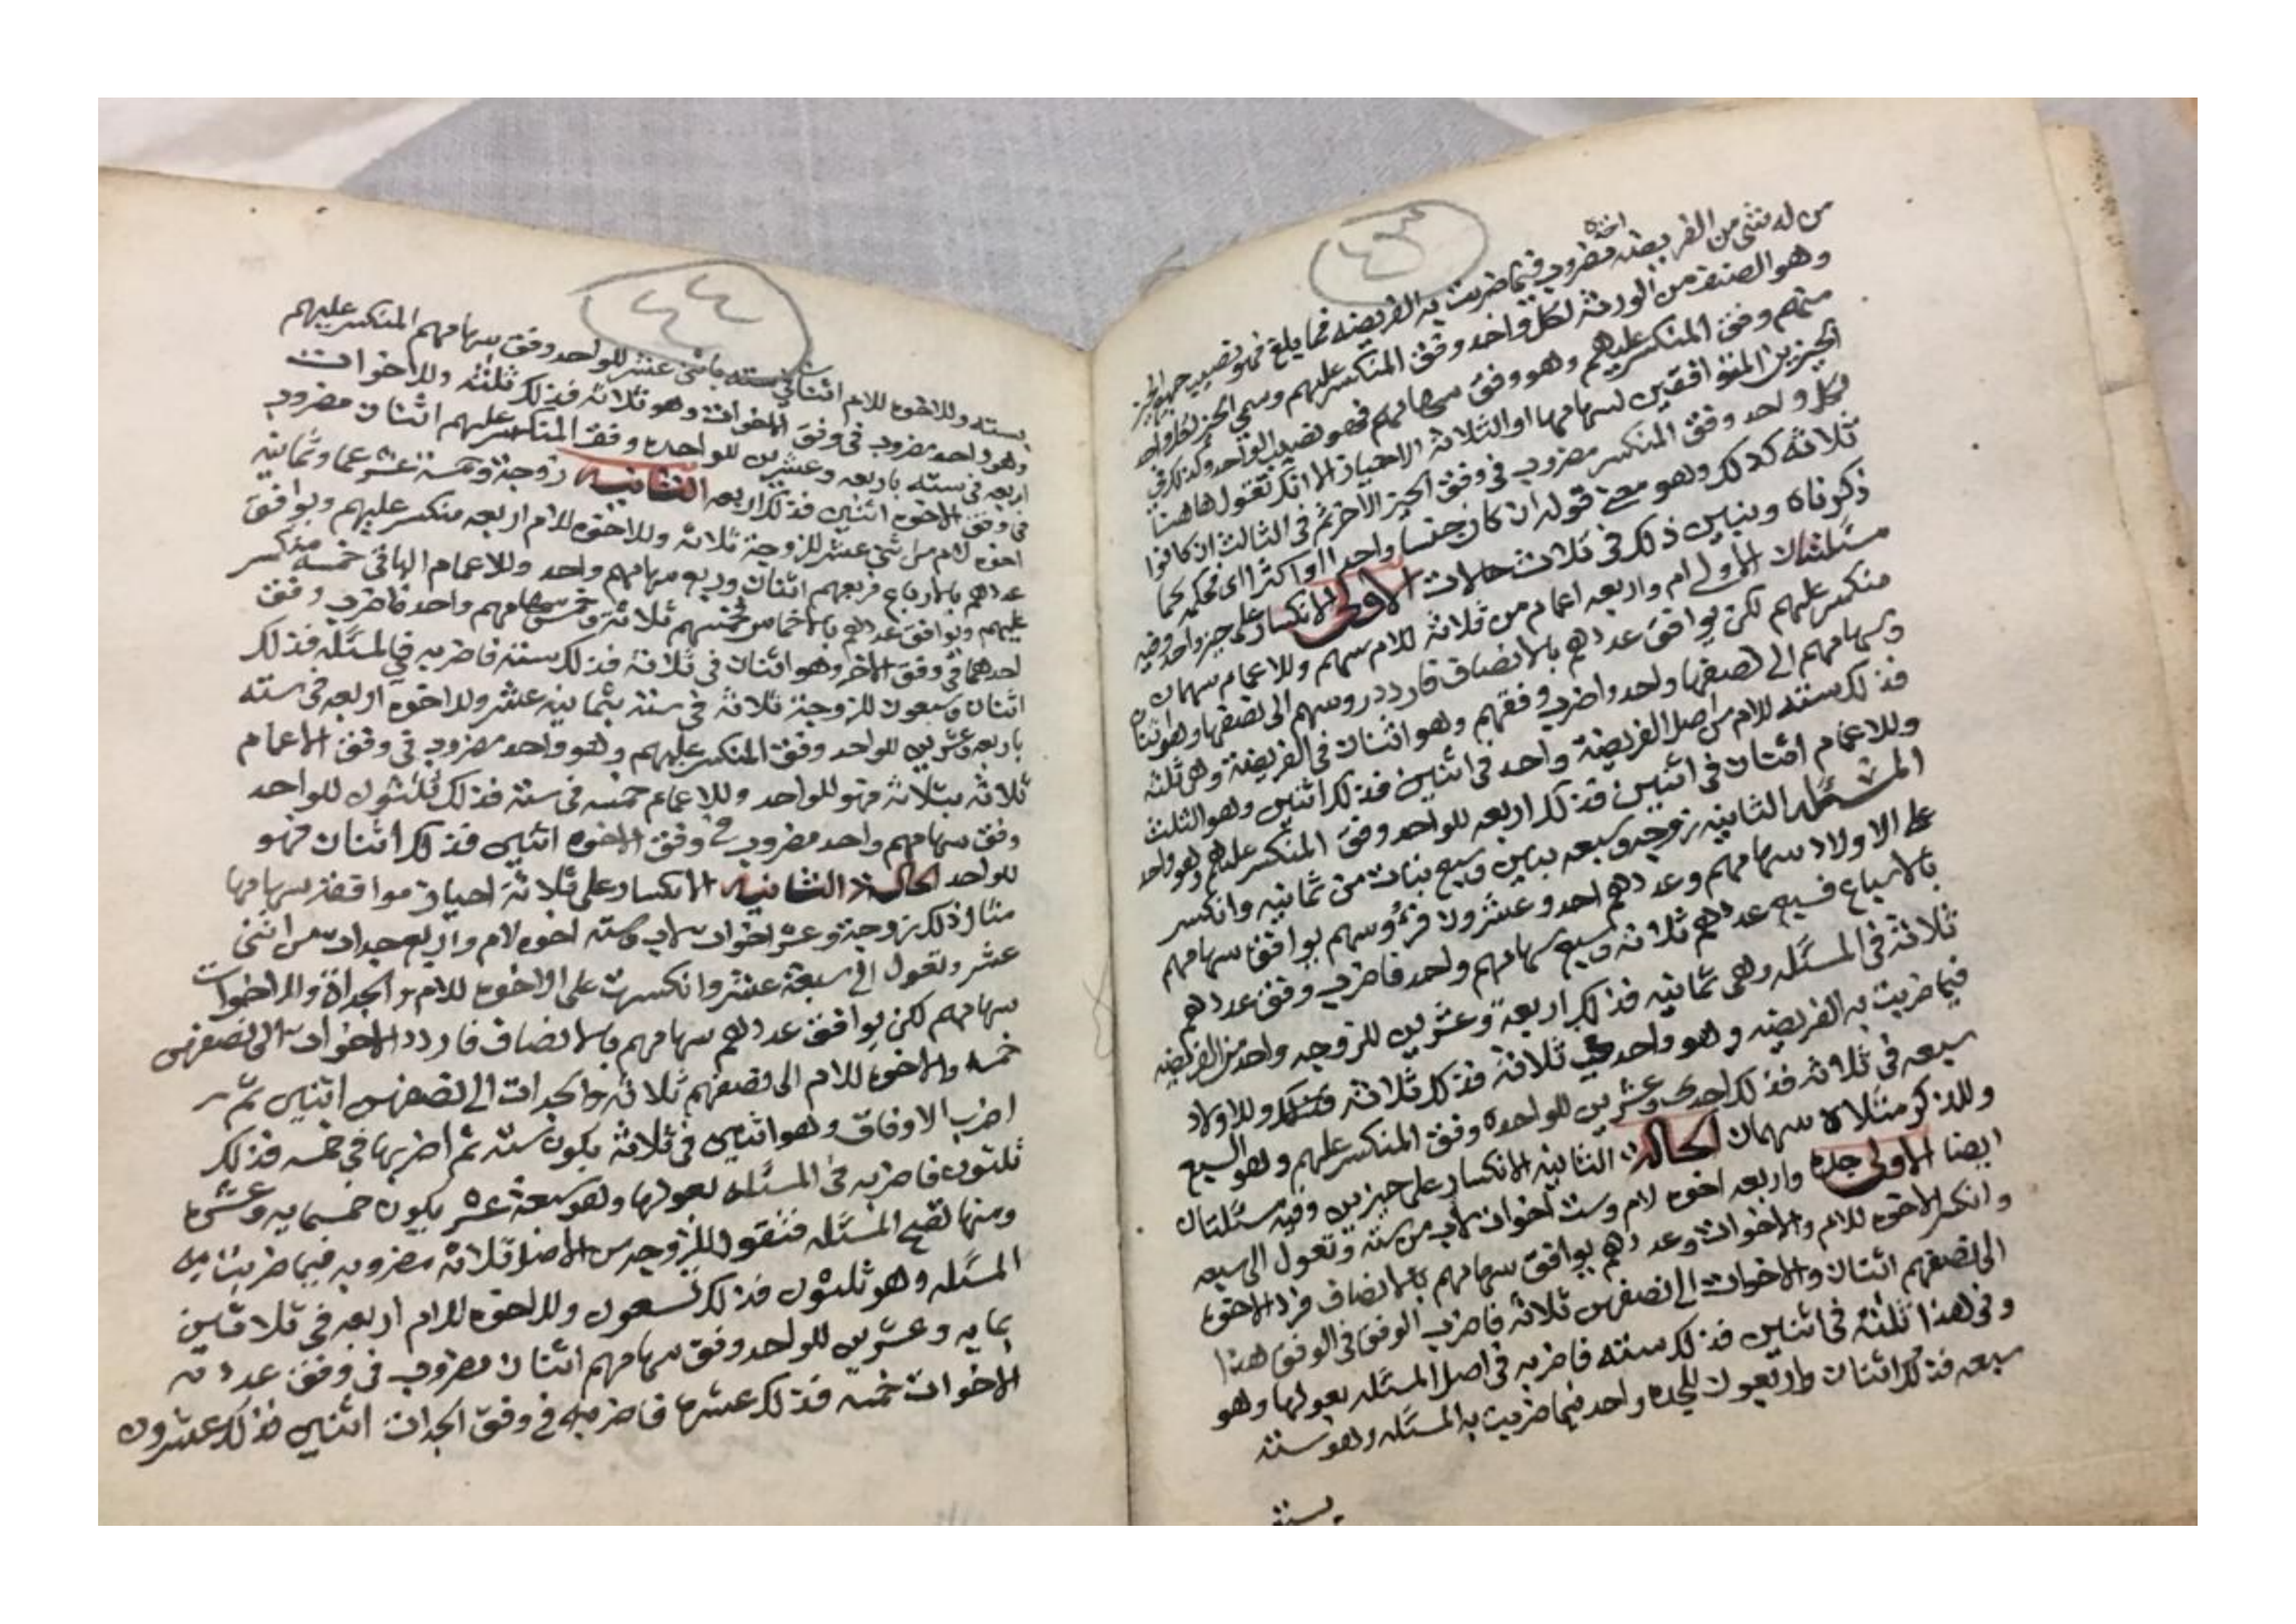 ٤٣
من له شئ من الفريضه اخذه مضروب فيما ضربت به الفريضه فما يلغ فهو نصيب جميع الحيز
وهو الصنف من الورثه لكل واحد وفق المنكسر عليهم وسمي الحيز لكل واحد
منهم وفق المنكسر عليهم وهو وفق سهامهم فهو نصيب الواحد وكذلك في
الحيزين المتوافقين لسهامها او الثلاثة الاحياز الا انك تقول هاهنا
لكل واحد وفق المنكسر مضروب في وفق الحيز الاخر ثم في الثالث ان كانوا
ثلاثه كذلك وهو معنى قوله ان كان جنسا واحدا او اكثر اي فحكمه كما
ذكرناه ونبين ذلك في ثلاث حالات الاولى الانكسار على حيز واحد وفيه
مسئلتان الاولى ام واربعه اعمام من ثلاثة للام سهم وللاعمام سهمان
منكسر عليهم لكن يوافق عددهم بالانصاف فاردد روسهم الى نصفها وهو اثنان
وسهامهم الى نصفها واحد واضرب وفقهم وهو اثنان في الفريضة وهي ثلثه
فذلك سته للام من اصل الفريضة واحد في اثنين فذلك اثنين وهو الثلث
وللاعمام اثنان في اثنين فذلك اربعه للواحد وفق المنكسر عليهم وهو واحد
المسئله الثانيه زوجه وسبعه بنين وسبع بنات من ثمانيه وانكسر
على الاولاد سهامهم وعددهم احد وعشرون فرؤسهم يوافق سهامهم
بالاسباع فسبع عددهم ثلاثه وسبع سهامهم واحد فاضرب وفق عددهم
ثلاثة في المسئله وهي ثمانيه فذلك اربعة وعشرين للزوجه واحد من الفريضه
فيما ضربت به الفريضه وهو واحد في ثلاثة فذلك ثلاثه وللاولاد
سبعه في ثلاثه فذلك احدى وعشرين للواحده وفق المنكسر عليهم وهو السبع
وللذكر مثلاه سهمان الحالة الثانيه الانكسار على حيزين وفيه مسئلتان
ايضا الاولى جده واربعه اخوه لام وست اخوات لاب من سته وتعول الى سبعه
وانكسر الاخوه للام والاخوات وعددهم يوافق سهامهم بالانصاف فرد الاخوه
الى نصفهم اثنان والاخوات الى نصفهن ثلاثة فاضرب الوفق في الوفق هذا
وفي هذا ثلثه في اثنين فذلك سته فاضربه في اصل المسئله بعولها وهو
سبعه فذلك اثنان واربعون للجده واحد فيما ضربت به المسئله وهو سته
بسته
٤٤
بسته وللاخوه للام اثنان في سته باثنى عشر للواحد وفق سهامهم المنكسر عليهم
وهو واحد مضروب في وفق الاخوات وهو ثلاثه فذلك ثلثه وللاخوات
اربعه في سته باربعه وعشرين للواحده وفق المنكسر عليهم اثنان مضروب
في وفق الاخوه اثنين فذلك اربعه الثانيه زوجة وخمسة عشر عما وثمانيه
اخوه لام من اثنى عشر للزوجة ثلاثه وللاخوه للام اربعه منكسر عليهم ويوافق
عددهم بالارباع فربعهم اثنان وربع سهامهم واحد وللاعمام الباقي خمسه منكسر
عليهم ويوافق عددهم بالاخماس فخمسهم ثلاثة وخمس سهامهم واحد فاضرب وفق
احدهما في وفق الاخر وهو اثنان في ثلاثة فذلك سته فاضربه في المسئله فذلك
اثنان وسبعون للزوجة ثلاثه في سته بثمانيه عشر وللاخوه اربعه في سته
باربعه وعشرين للواحد وفق المنكسر عليهم وهو واحد مضروب في وفق الاعمام
ثلاثه بثلاثه فهو للواحد وللاعمام خمسه في سته فذلك ثلثون للواحد
وفق سهامهم واحد مضروب في وفق الاخوه اثنين فذلك اثنان فهو
للواحد الحالة الثانيه الانكسار على ثلاثة احياز موافقة سهامها
مثال ذلك زوجة وعشر اخوات لاب وسته اخوه لام واربع جدات من اثنى
عشر وتعول الى سبعة عشر وانكسرت على الاخوه للام والجداة والاخوات
سهامهم لكن يوافق عددهم سهامهم بالانصاف فاردد الاخوات الى نصفهن
خمسه والاخوه للام الى نصفهم ثلاثه والجدات الى نصفهن اثنين ثم
اضرب الاوفاق وهو اثنين في ثلاثه يكون سته ثم اضربها في خمسه فذلك
ثلثون فاضربه في المسئله بعولها وهو سبعة عشر يكون خمسمايه وعشره
ومنها تصح المسئله فنقول للزوجه من الاصل ثلاثه مضروبه فيما ضربت به
المسئله وهو ثلثون فذلك تسعون وللاخوه للام اربعه في ثلاثين
بمايه وعشرين للواحد وفق سهامهم اثنان مضروب في وفق عدد
الاخوات خمسه فذلك عشره فاضربه في وفق الجدات اثنين فذلك عشرون